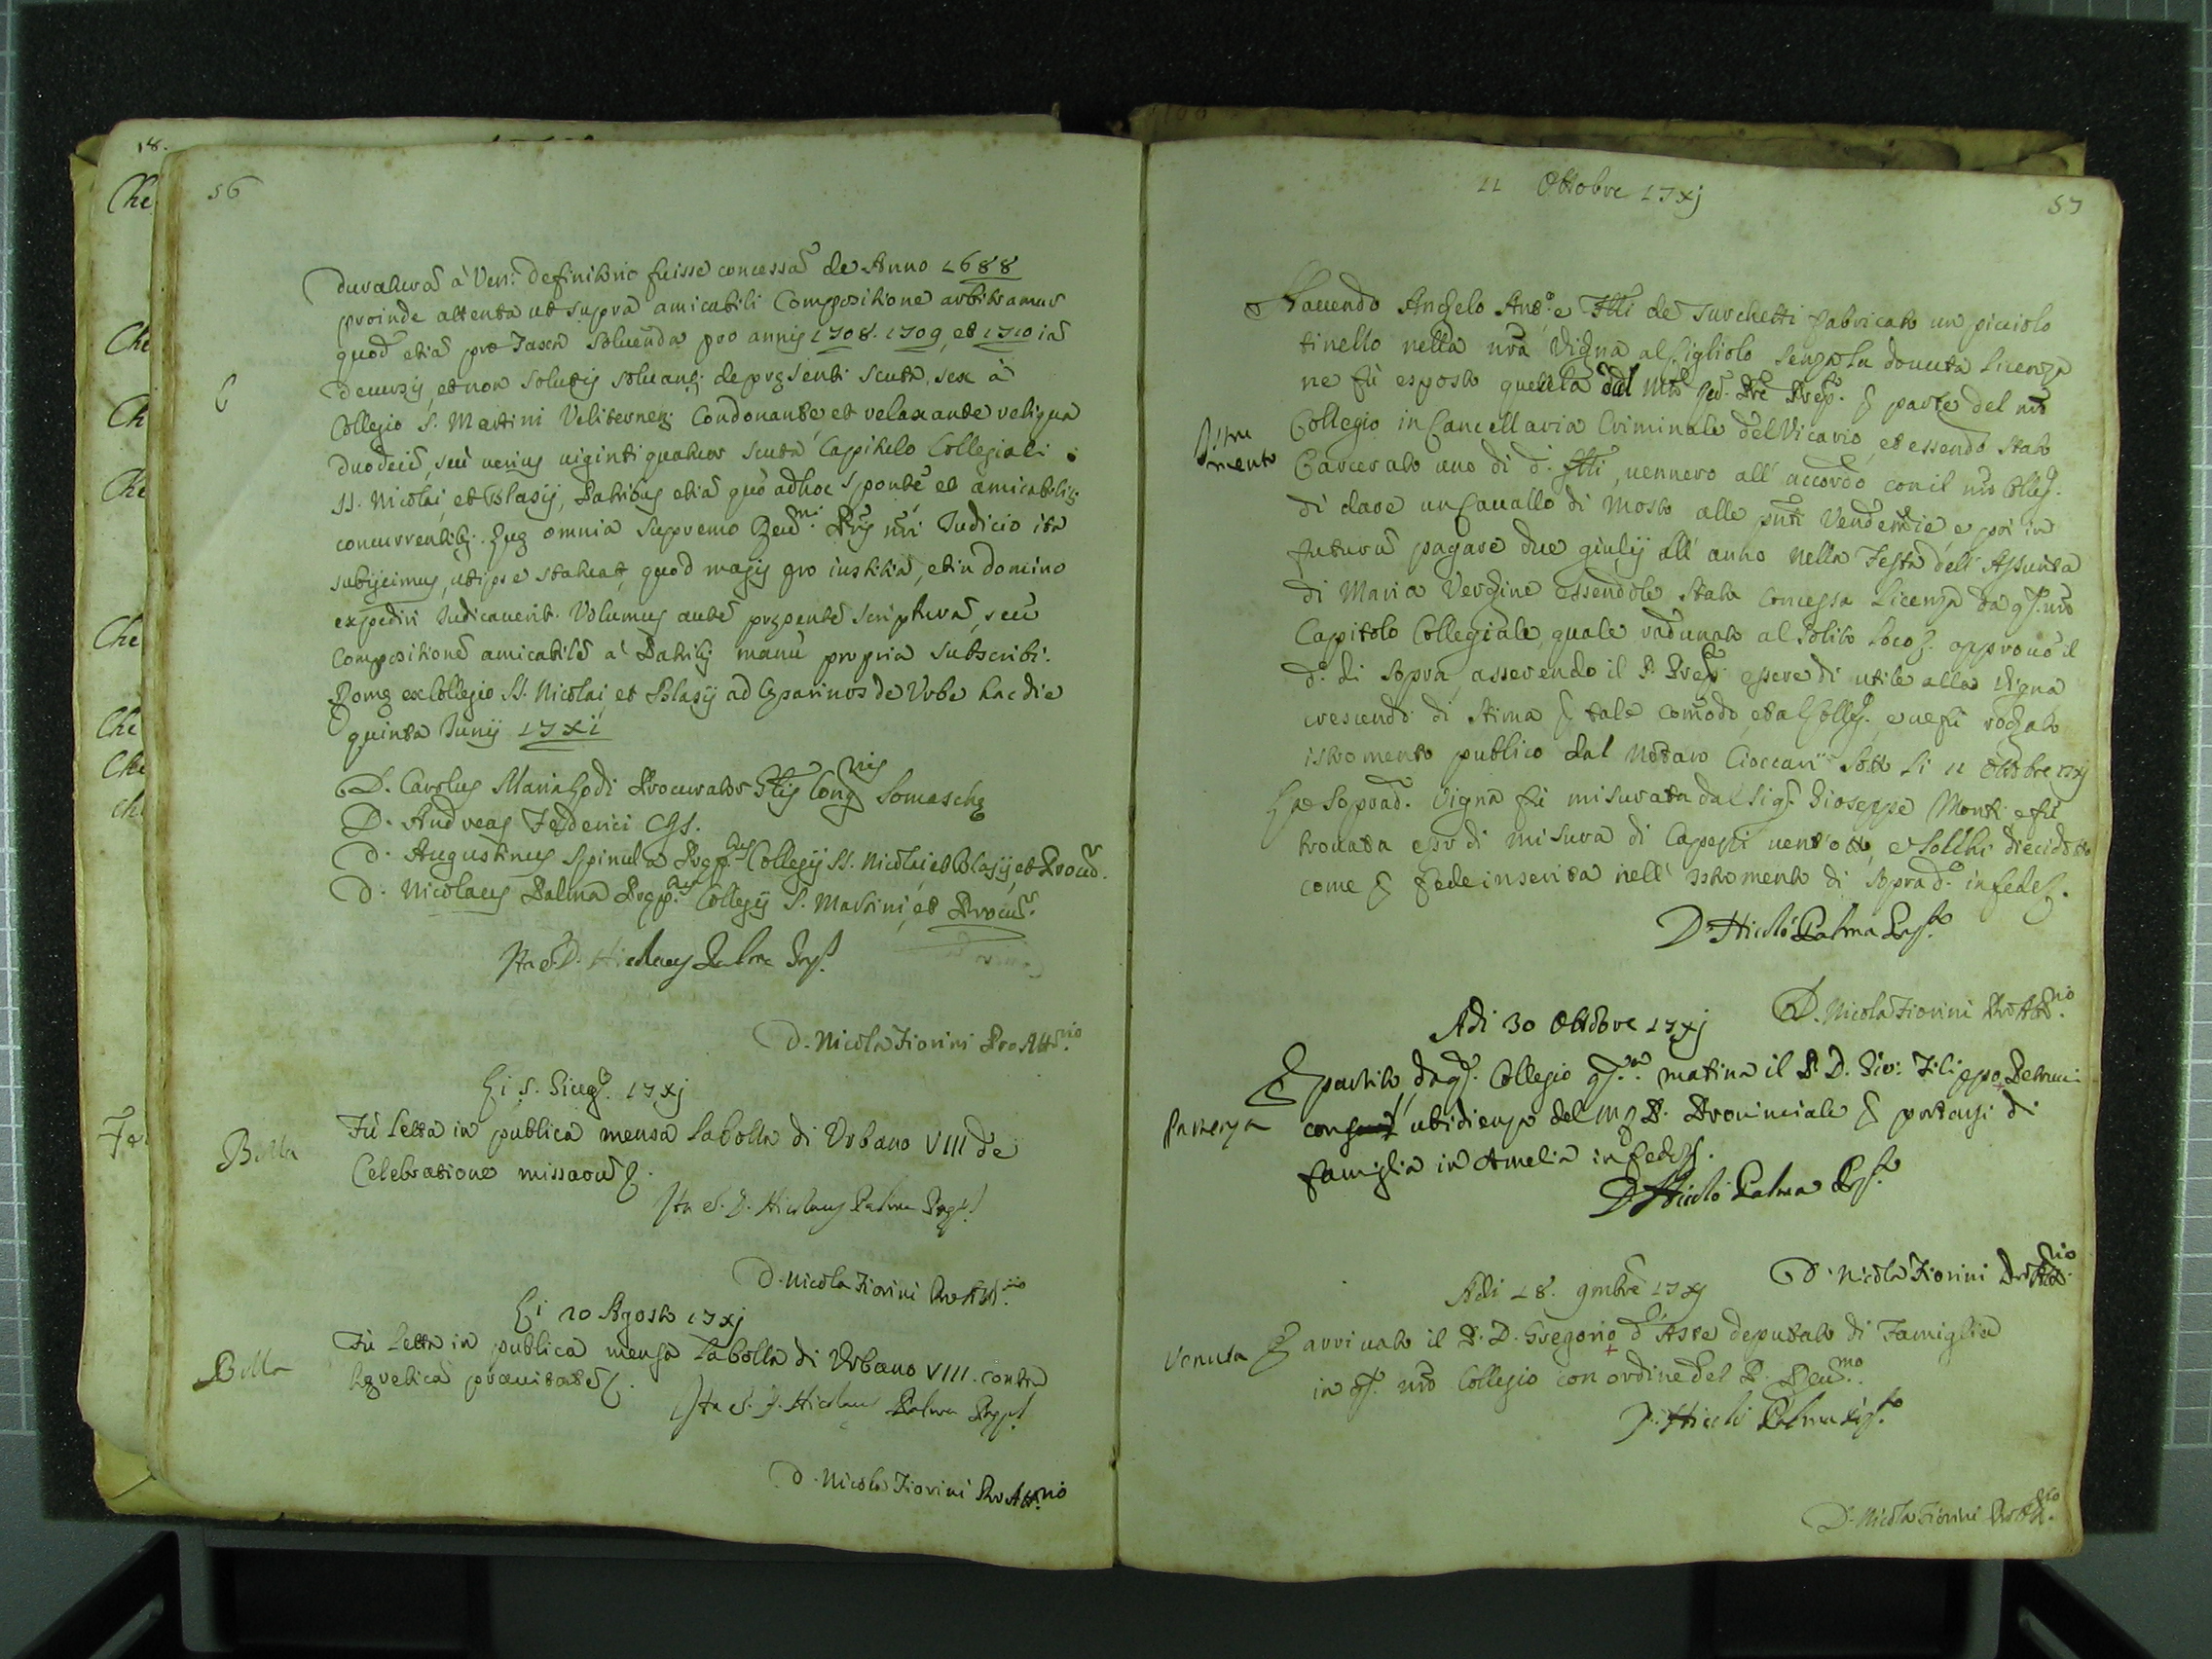 56
duraturā à Ven: Definitorio fuisse concessā de Anno 1688
proinde attenta ut supra amicabili Compositione arbitramur
quod etiā pro Taxa soluenda pro annis 1708. 1709, et 1710 iā
decursis, et non solutis soluant; de presenti scuta sex à
Collegio S. Martini Veliternen: Condonante et relaxante reliqua
duodeci, seù verius viginti quatuor scuta Capitulo Collegiali
SS. Nicolai, et Blasij, Patribus etiā quò ad hoc sponte et amicabiliter
concurrentib: Que omnia supremo Reu.mi Pris nri Iudicio ita
subijcimus, ut ipse statuat, quod magis pro iustitia, et in Domino
expediri Iudicauerit. Volumus autē presentē scripturā, seu
Compositionē amicabilē a Patrib; manu propria subscribi.
Rome ex Collegio SS. Nicolai, et Blasij ad Cesarinos de Vrbe hac die
quinta Iunij 17xi
D. Carolus Maria Lodi Procurator Glis Cong.nis Somasche
D. Andreas Federici CRS.
D. Augustinus Spinula Prep.tus Collegij SS. Nicolai et Blasij, et Procur.
D. Nicolaus Palma Prep.tus Collegij S. Martini, et Procur.
Ita e. D. Nicolaus Palma Prep.
D. Nicola Fiorini Pro Att.rio
Li 5. Giug.o 17xj
Bolla
Fù letta in publica mensa la bolla di Vrbano VIII de
Celebratione missarū
Ita e. D. Nicolaus Palma Prep.
D. Nicola Fiorini Pro Att.rio
Li 20 Agosto 17xj
Bolla
Fù letta in publica mensa la bolla di Vrbano VIII. contra
hereticā prauitatē
Ita e. D. Nicolaus Palma Prep.
D. Nicola Fiorini Pro Att.rio
11 Ottobre 17xj
57
Hauendo Angelo Ant.o e Flli de Turchetti fabricato un picciolo
tinello nella nra Vigna al Figliolo senza la douuta licenza
ne fù esposto querela dal M.to Re. Pre Prep. p parte del nro
Istru
mento
Collegio in Cancellaria Criminale del Vicario, et essendo stato
Carcerato uno di d. Flli, vennero all' accordo con il nro Colleg.
di dare un Cauallo di Mosto alle pnti Vendemie e poi in
futurū pagare due giulij all' anno nella Festa dell' Assunta
di Maria Vergine essendole stata concessa licenza da q.to nro
Capitolo Collegiale, quale radunato al solito loco approuò il
d.o di sopra, asserendo il P. Prep. essere di utile alla Vigna
crescendo di stima p tale comodo, et al Colleg. e ne fù rogato
istromento publico dal Notaro Cioccari sotto li 11 Ottobre 17xj
La soprad. Vigna fù misurata dal Sig. Gioseppe Monti e fù
trouata esser di misura di Capezzi uent'otto, e solchi dieciotto
come p fede inserita nell' istromento di soprad.o in fede
D. Nicolò Palma Prep.to
D. Nicola Fiorini Pro Att.rio
Adi 30 Ottobre 17xj
Partenza
E partito da q. Collegio q.ta matina il P. D. Gio: Filippo Petrucci
con ubidienza del M. R. P. Prouinciale p portarsi di
famiglia in Amelia in fede
D. Nicolò Palma Prep.to
D. Nicola Fiorini Pro Att.rio
Adi 18. 9mbre 17xj
Venuta
E arriuato il P. D. Gregorio d'Aste deputato di Famiglia
in q. nro Collegio con ordine del P. Reu.mo
D. Nicolò Palma Prep.to
D. Nicola Fiorini Pro Att.rio